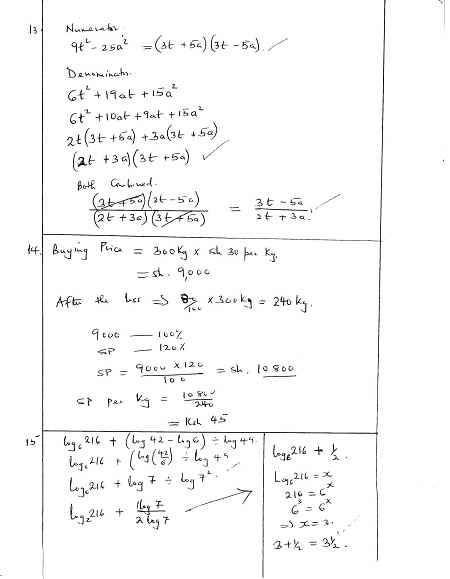 13. Numerator.
9t² - 25a² = (3t + 5a)(3t - 5a)
Denominator.
6t² + 19at + 15a²
6t² + 10at + 9at + 15a²
2t(3t + 5a) + 3a(3t + 5a)
(2t + 3a)(3t + 5a)
Both Combined.
(3t + 5a)(3t - 5a) / (2t + 3a)(3t + 5a) = 3t - 5a / 2t + 3a
14. Buying Price = 300kg x sh 30 per kg.
= sh. 9,000
After the loss => 80/100 x 300kg = 240 kg.
9000 — 100%
SP — 120%
SP = 9000 x 120 / 100 = sh. 10800
SP per kg = 10800 / 240
= Ksh 45
15 log₆216 + (log 42 - log 6) ÷ log 49.
log₆216 + (log(42/6)) ÷ log 49
log₆216 + log 7 ÷ log 7²
log₂216 + 1log 7 / 2 log 7
log₆216 + ½.
Log₆216 = x
216 = 6ˣ
6³ = 6ˣ
=> x = 3.
3 + ½ = 3½.